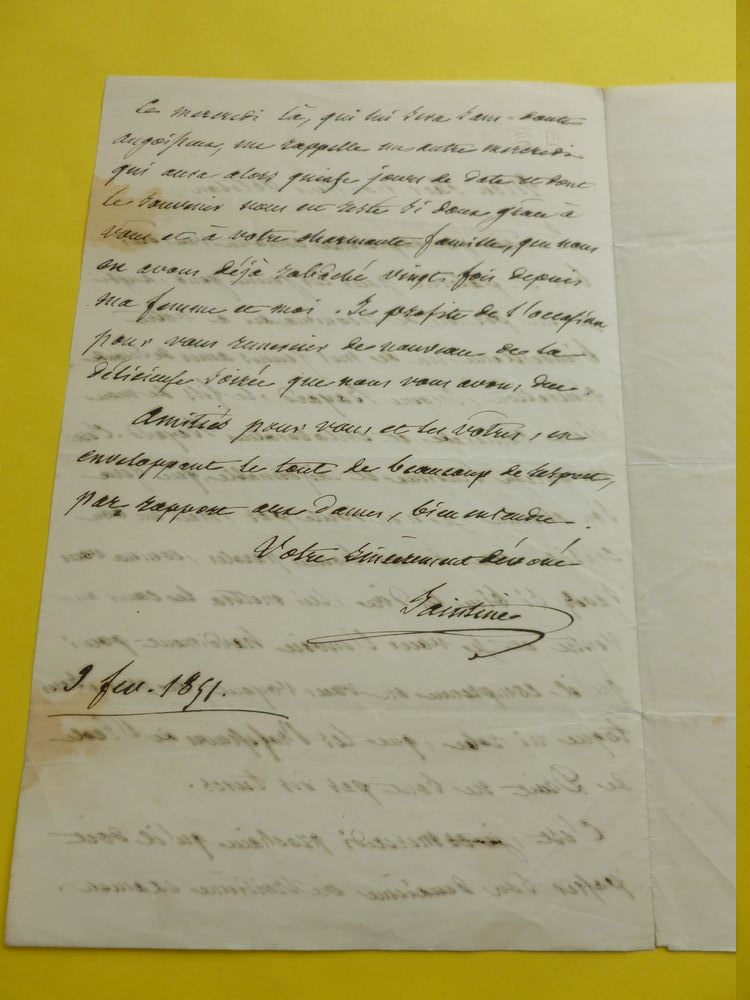 Ce mercredi là, qui lui sera sans doute
angoisseux, me rappelle un autre mercredi
qui aura alors quinze jours de date et dont
le souvenir nous en reste si doux grâce à
vous et à votre charmante famille, que nous
en avons déjà rabaché vingt fois depuis
ma femme et moi. Je profite de l'occasion
pour vous remercier de nouveau de la
délicieuse soirée que nous vous avons due
Amitiés pour vous et les vôtres, en
enveloppant le tout de beaucoup de respect,
par rapport aux dames, bien entendu.
Votre sincèrement dévoué
Saintine
9 fev. 1851.